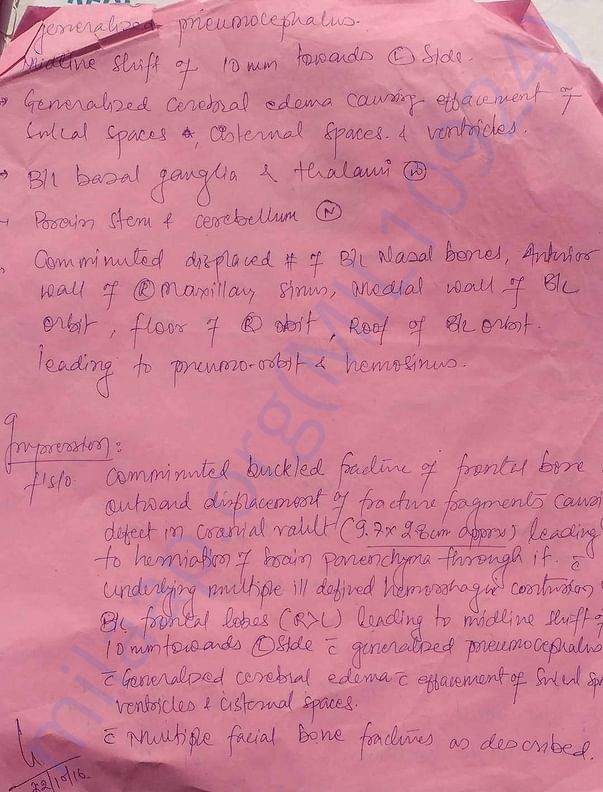 generalized pneumocephalus.
Midline shift of 10 mm towards Ⓛ side.
→ Generalized cerebral edema causing effacement of
Sulcal spaces, cisternal spaces. & ventricles.
→ B/L basal ganglia & thalami Ⓝ
Brain stem & cerebellum Ⓝ
Comminuted displaced # of B/L Nasal bones, Anterior
wall of Ⓡ Maxillary sinus, Medial wall of B/L
orbit, floor of Ⓡ orbit, Roof of B/L orbit.
leading to pneumo-orbit & hemosinus.
Impression:
f/s/o. Comminuted buckled fracture of frontal bone
outward displacement of fracture fragments causi
defect in cranial vault (9.7x2.8cm approx) leading
to herniation of brain parenchyma through it. c̄
underlying multiple ill defined hemorrhagic contusions
B/L frontal lobes (R>L) leading to midline shift of
10mm towards Ⓛ side c̄ generalized pneumocephalus
c̄ Generalized cerebral edema c̄ effacement of Sulcal sp
ventricles & cisternal spaces.
c̄ Multiple facial bone fractures as described.
22/10/16
milaap.org(MIL10924)